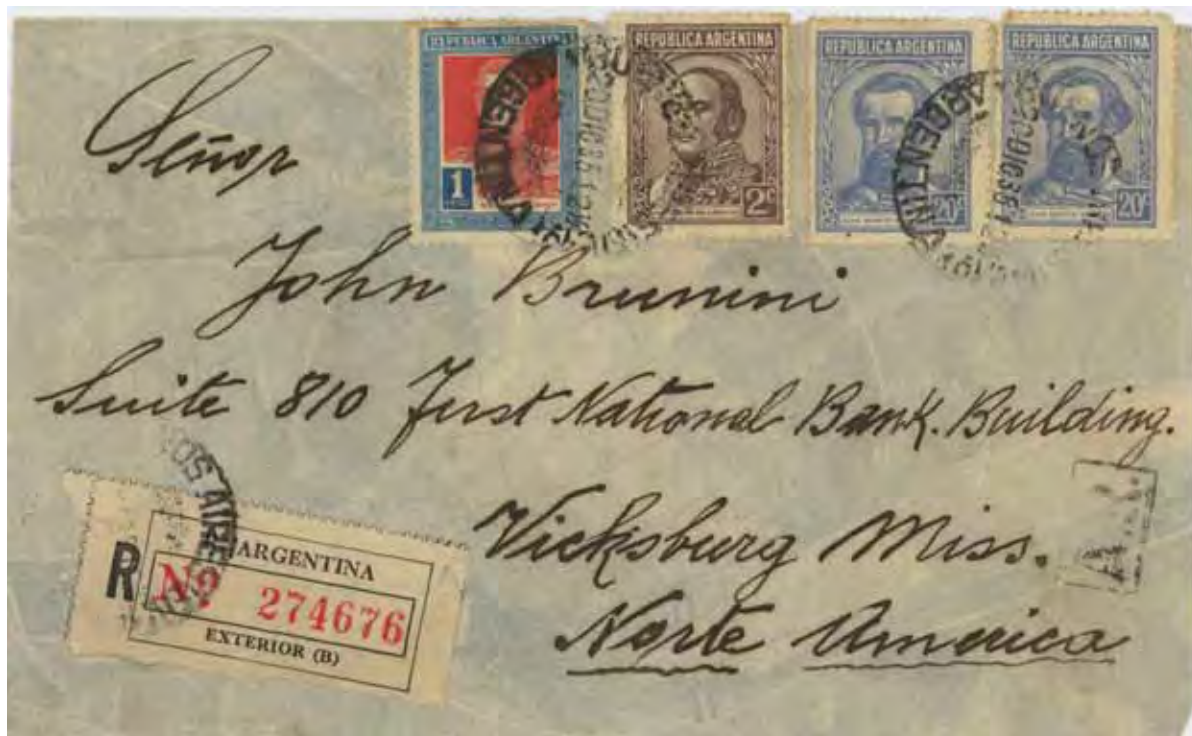 REPUBLICA ARGENTINA
1
REPUBLICA ARGENTINA
2c
REPUBLICA ARGENTINA
20c
REPUBLICA ARGENTINA
20c
ARGENTINA
ARGENTINA
Señor
John Brunini
Suite 810 First National Bank. Building.
Vicksburg Miss.
Norte America
R
ARGENTINA
Nº 274676
EXTERIOR (B)